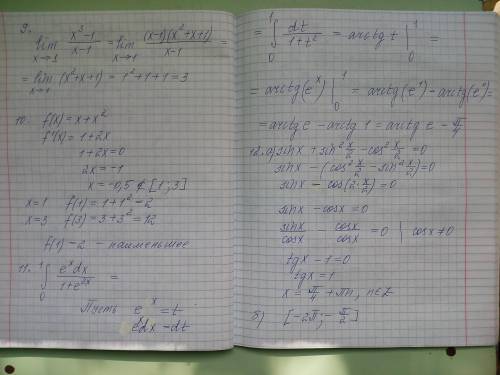 9.
lim x→1 (x³-1)/(x-1) = lim x→1 (x-1)(x²+x+1)/(x-1) =
= lim x→1 (x²+x+1) = 1²+1+1 = 3
10. f(x) = x+x²
f'(x) = 1+2x
1+2x=0
2x=-1
x = -0,5 ∉ [1;3]
x=1 f(1) = 1+1² = 2
x=3 f(3) = 3+3² = 12
f(1) = 2 - наименьшее
11. ∫₀¹ eˣdx/(1+e²ˣ) =
Пусть eˣ = t
eˣdx = dt
= ∫₀¹ dt/(1+t²) = arctg t |₀¹ =
= arctg(eˣ)|₀¹ = arctg(e¹) - arctg(e⁰) =
= arctg e - arctg 1 = arctg e - π/4
12. а) sinx + sin² x/2 - cos² x/2 = 0
sinx - (cos² x/2 - sin² x/2) = 0
sinx - cos(2·x/2) = 0
sinx - cosx = 0
sinx/cosx - cosx/cosx = 0 | cosx ≠ 0
tgx - 1 = 0
tgx = 1
x = π/4 + πn, n∈Z
б) [-2π; -π/2]